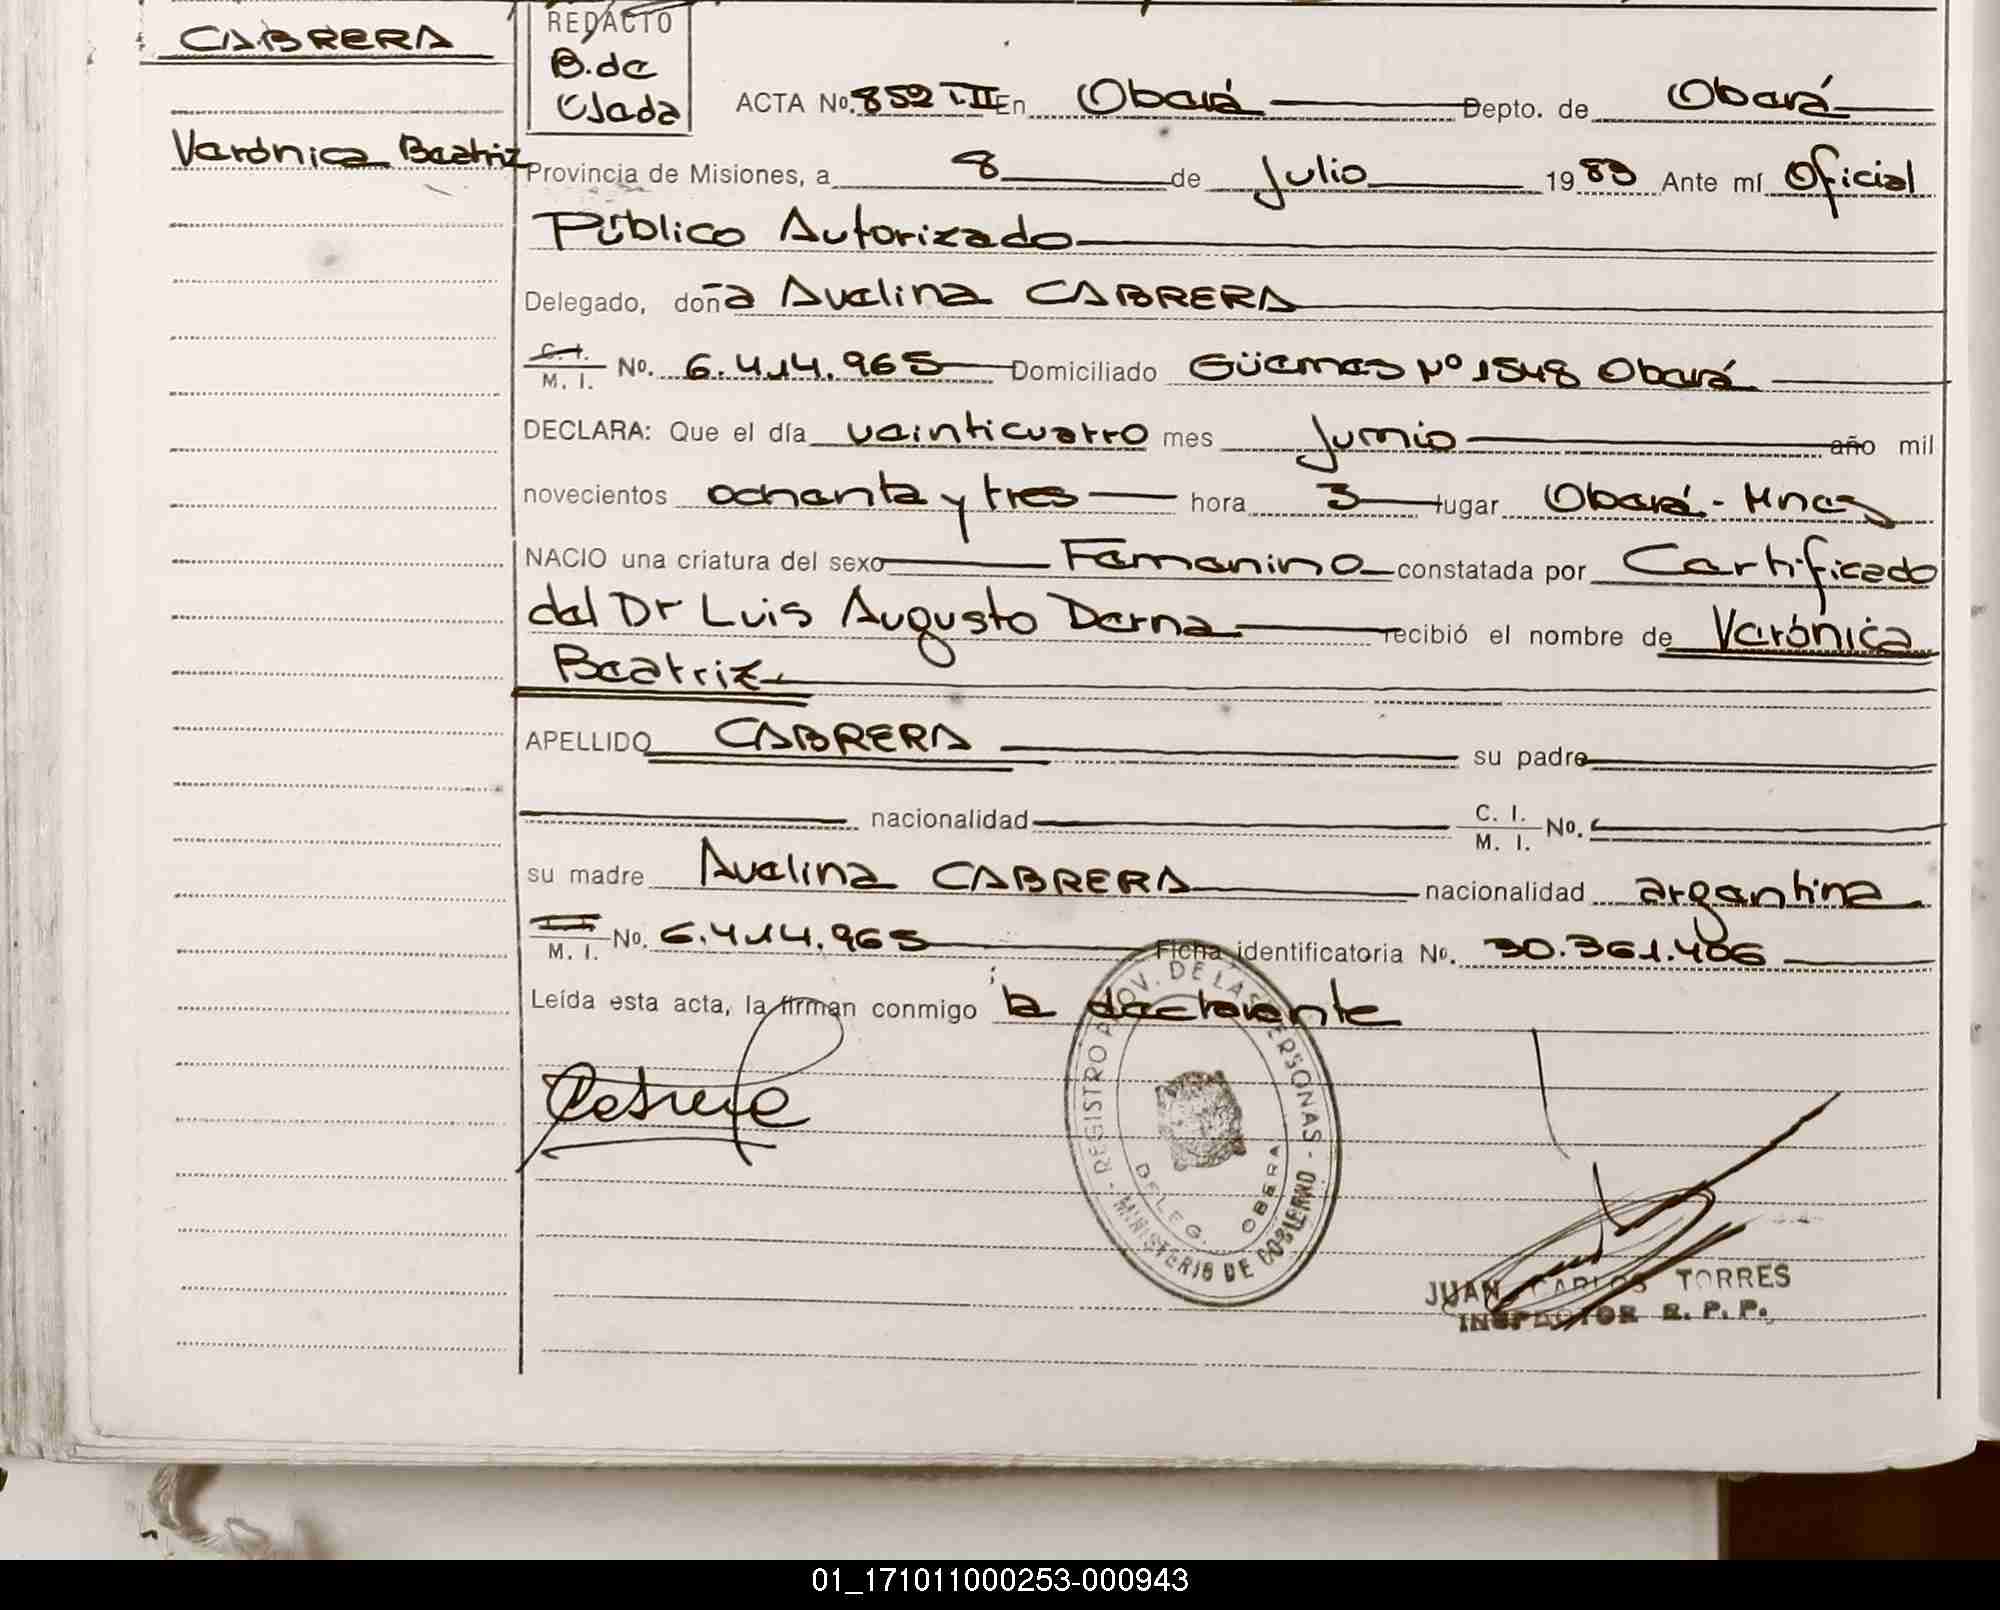 CABRERA
Verónica Beatriz
REDACTO
B. de
Olada
ACTA No. 852 T. II En Oberá Depto. de Oberá
Provincia de Misiones, a 8 de Julio 1983 Ante mí Oficial
Público Autorizado
Delegado, doña Avelina CABRERA
C. I.
M. I. No. 6.414.965 Domiciliado Güemes Nº 1548 Oberá
DECLARA: Que el día veinticuatro mes Junio año mil
novecientos ochenta y tres hora 3 lugar Oberá - Mnes
NACIO una criatura del sexo Femenino constatada por Certificado
del Dr Luis Augusto Derna recibió el nombre de Verónica
Beatriz
APELLIDO CABRERA su padre
nacionalidad C. I.
M. I. No.
su madre Avelina CABRERA nacionalidad argentina
M. I. No. 6.414.965 Ficha identificatoria No. 30.361.406
Leída esta acta, la firman conmigo la declarante
REGISTRO PROV. DE LAS PERSONAS - MINISTERIO DE GOBIERNO -
DELEG. OBERA
JUAN CARLOS TORRES
INSPECTOR R. P. P.
01_171011000253-000943